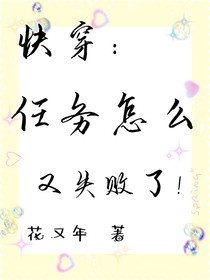 快穿：
任务怎么
又失败了！
花又年 著